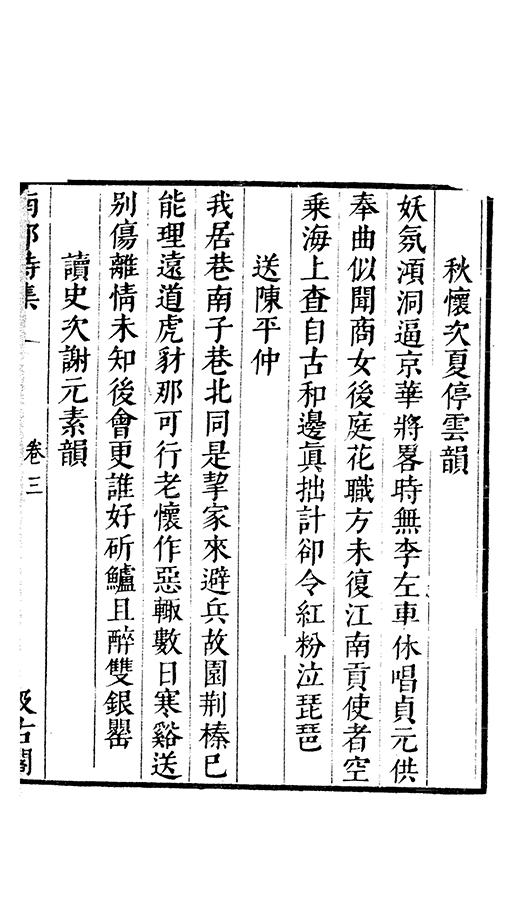 秋懷次夏停雲韻
妖氛澒洞逼京華將畧時無李左車休唱貞元供
奉曲似聞商女後庭花職方未復江南貢使者空
乘海上查自古和邊眞拙計卻令紅粉泣琵琶
送陳平仲
我居巷南子巷北同是挈家來避兵故園荆榛已
能理遠道虎豺那可行老懷作惡輙數日寒谿送
别傷離情未知後會更誰好斫鱸且醉雙銀罌
讀史次謝元素韻
卷三
汲古閣